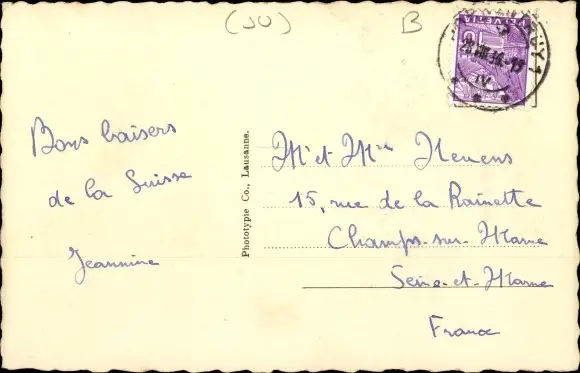 (JU)
B
HELVETIA
10
Bons baisers
de la Suisse
Jeannine
Phototypie Co., Lausanne.
Mr et Mme Neuens
15, rue de la Rainette
Champs-sur-Marne
Seine-et-Marne
France